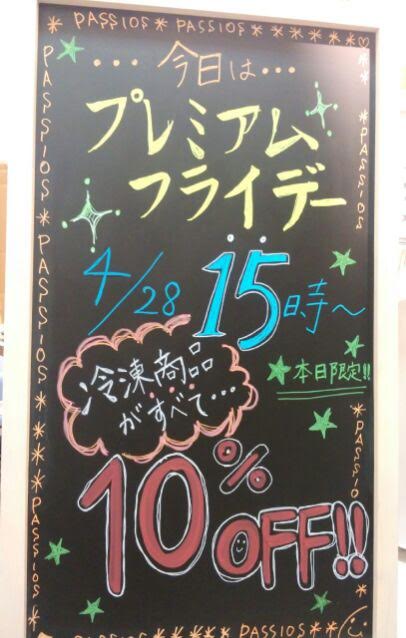 PASSIOS ** PASSIOS * * * * * * * *♡
・・・今日は・・・
プレミアム
フライデー
4/28 15時~
冷凍商品
がすべて・・・
★本日限定!!
10% OFF!!
PASSIOS * PASSIOS * PASSIOS * * * * * * PASSIOS
* * PASSIOS * * * PASSIOS *
* * * * * * PASSIOS * *